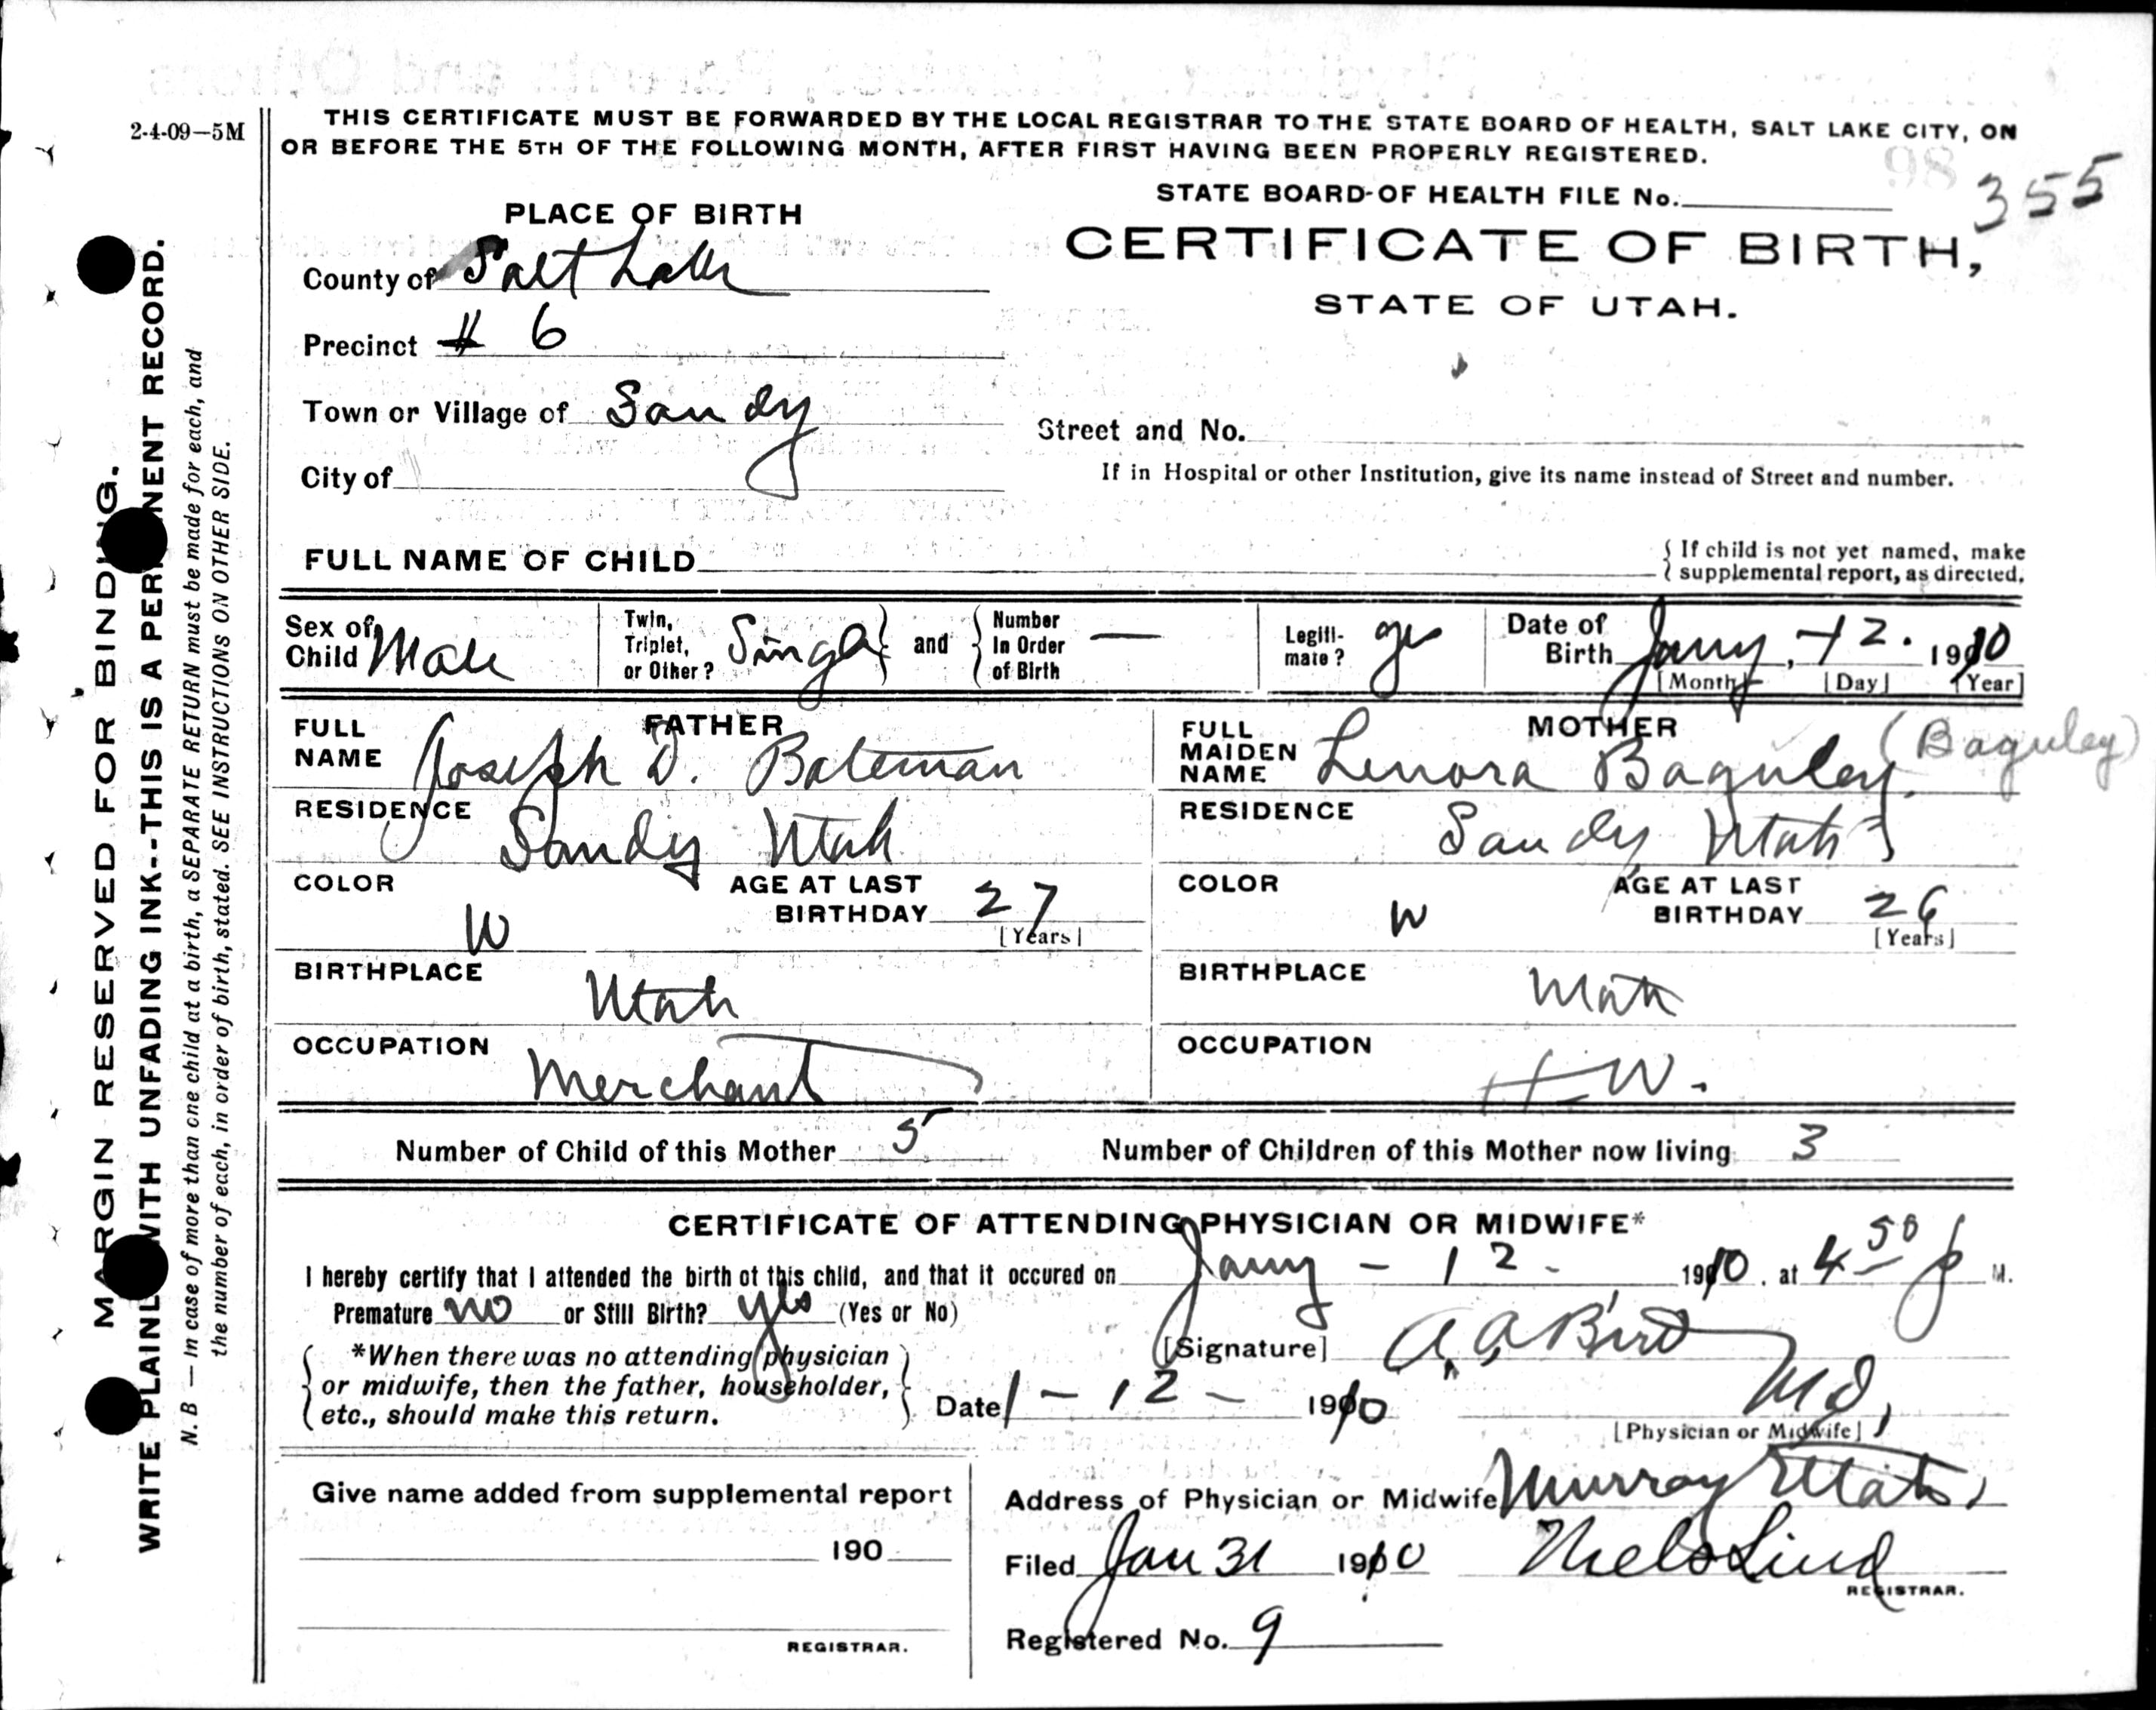 2-4-09—5M
THIS CERTIFICATE MUST BE FORWARDED BY THE LOCAL REGISTRAR TO THE STATE BOARD OF HEALTH, SALT LAKE CITY, ON
OR BEFORE THE 5TH OF THE FOLLOWING MONTH, AFTER FIRST HAVING BEEN PROPERLY REGISTERED.
98
STATE BOARD-OF HEALTH FILE No. 355
CERTIFICATE OF BIRTH,
STATE OF UTAH.
PLACE OF BIRTH
County of Salt Lake
Precinct # 6
Town or Village of Sandy
Street and No.
City of
If in Hospital or other Institution, give its name instead of Street and number.
FULL NAME OF CHILD
{ If child is not yet named, make
supplemental report, as directed.
Sex of Child Male
Twin, Triplet, or Other? Single } and { Number In Order of Birth —
Legiti- mate? yes
Date of Birth Jany, -12. 1910
[Month] [Day] [Year]
FATHER
FULL NAME Joseph D. Bateman
RESIDENCE Sandy Utah
COLOR W
AGE AT LAST BIRTHDAY 27
[Years]
BIRTHPLACE Utah
OCCUPATION Merchant
MOTHER
FULL MAIDEN NAME Lenora Baguley (Baguley)
RESIDENCE Sandy Utah
COLOR W
AGE AT LAST BIRTHDAY 26
[Years]
BIRTHPLACE Utah
OCCUPATION H W.
Number of Child of this Mother 5 Number of Children of this Mother now living 3
CERTIFICATE OF ATTENDING PHYSICIAN OR MIDWIFE*
I hereby certify that I attended the birth of this child, and that it occured on Jany - 12 - 1910. at 4 50 p M.
Premature no or Still Birth? yes (Yes or No)
[Signature] A. A. Bird
MD,
[Physician or Midwife]
*When there was no attending physician
or midwife, then the father, householder,
etc., should make this return.
Date 1 - 12 - 1910
Give name added from supplemental report
190
REGISTRAR.
Address of Physician or Midwife Murray Utah,
Filed Jan 31 1910 Niels Lind
REGISTRAR.
Registered No. 9
MARGIN RESERVED FOR BINDING.
WRITE PLAINLY WITH UNFADING INK--THIS IS A PERMANENT RECORD.
N. B — In case of more than one child at a birth, a SEPARATE RETURN must be made for each, and
the number of each, in order of birth, stated. SEE INSTRUCTIONS ON OTHER SIDE.